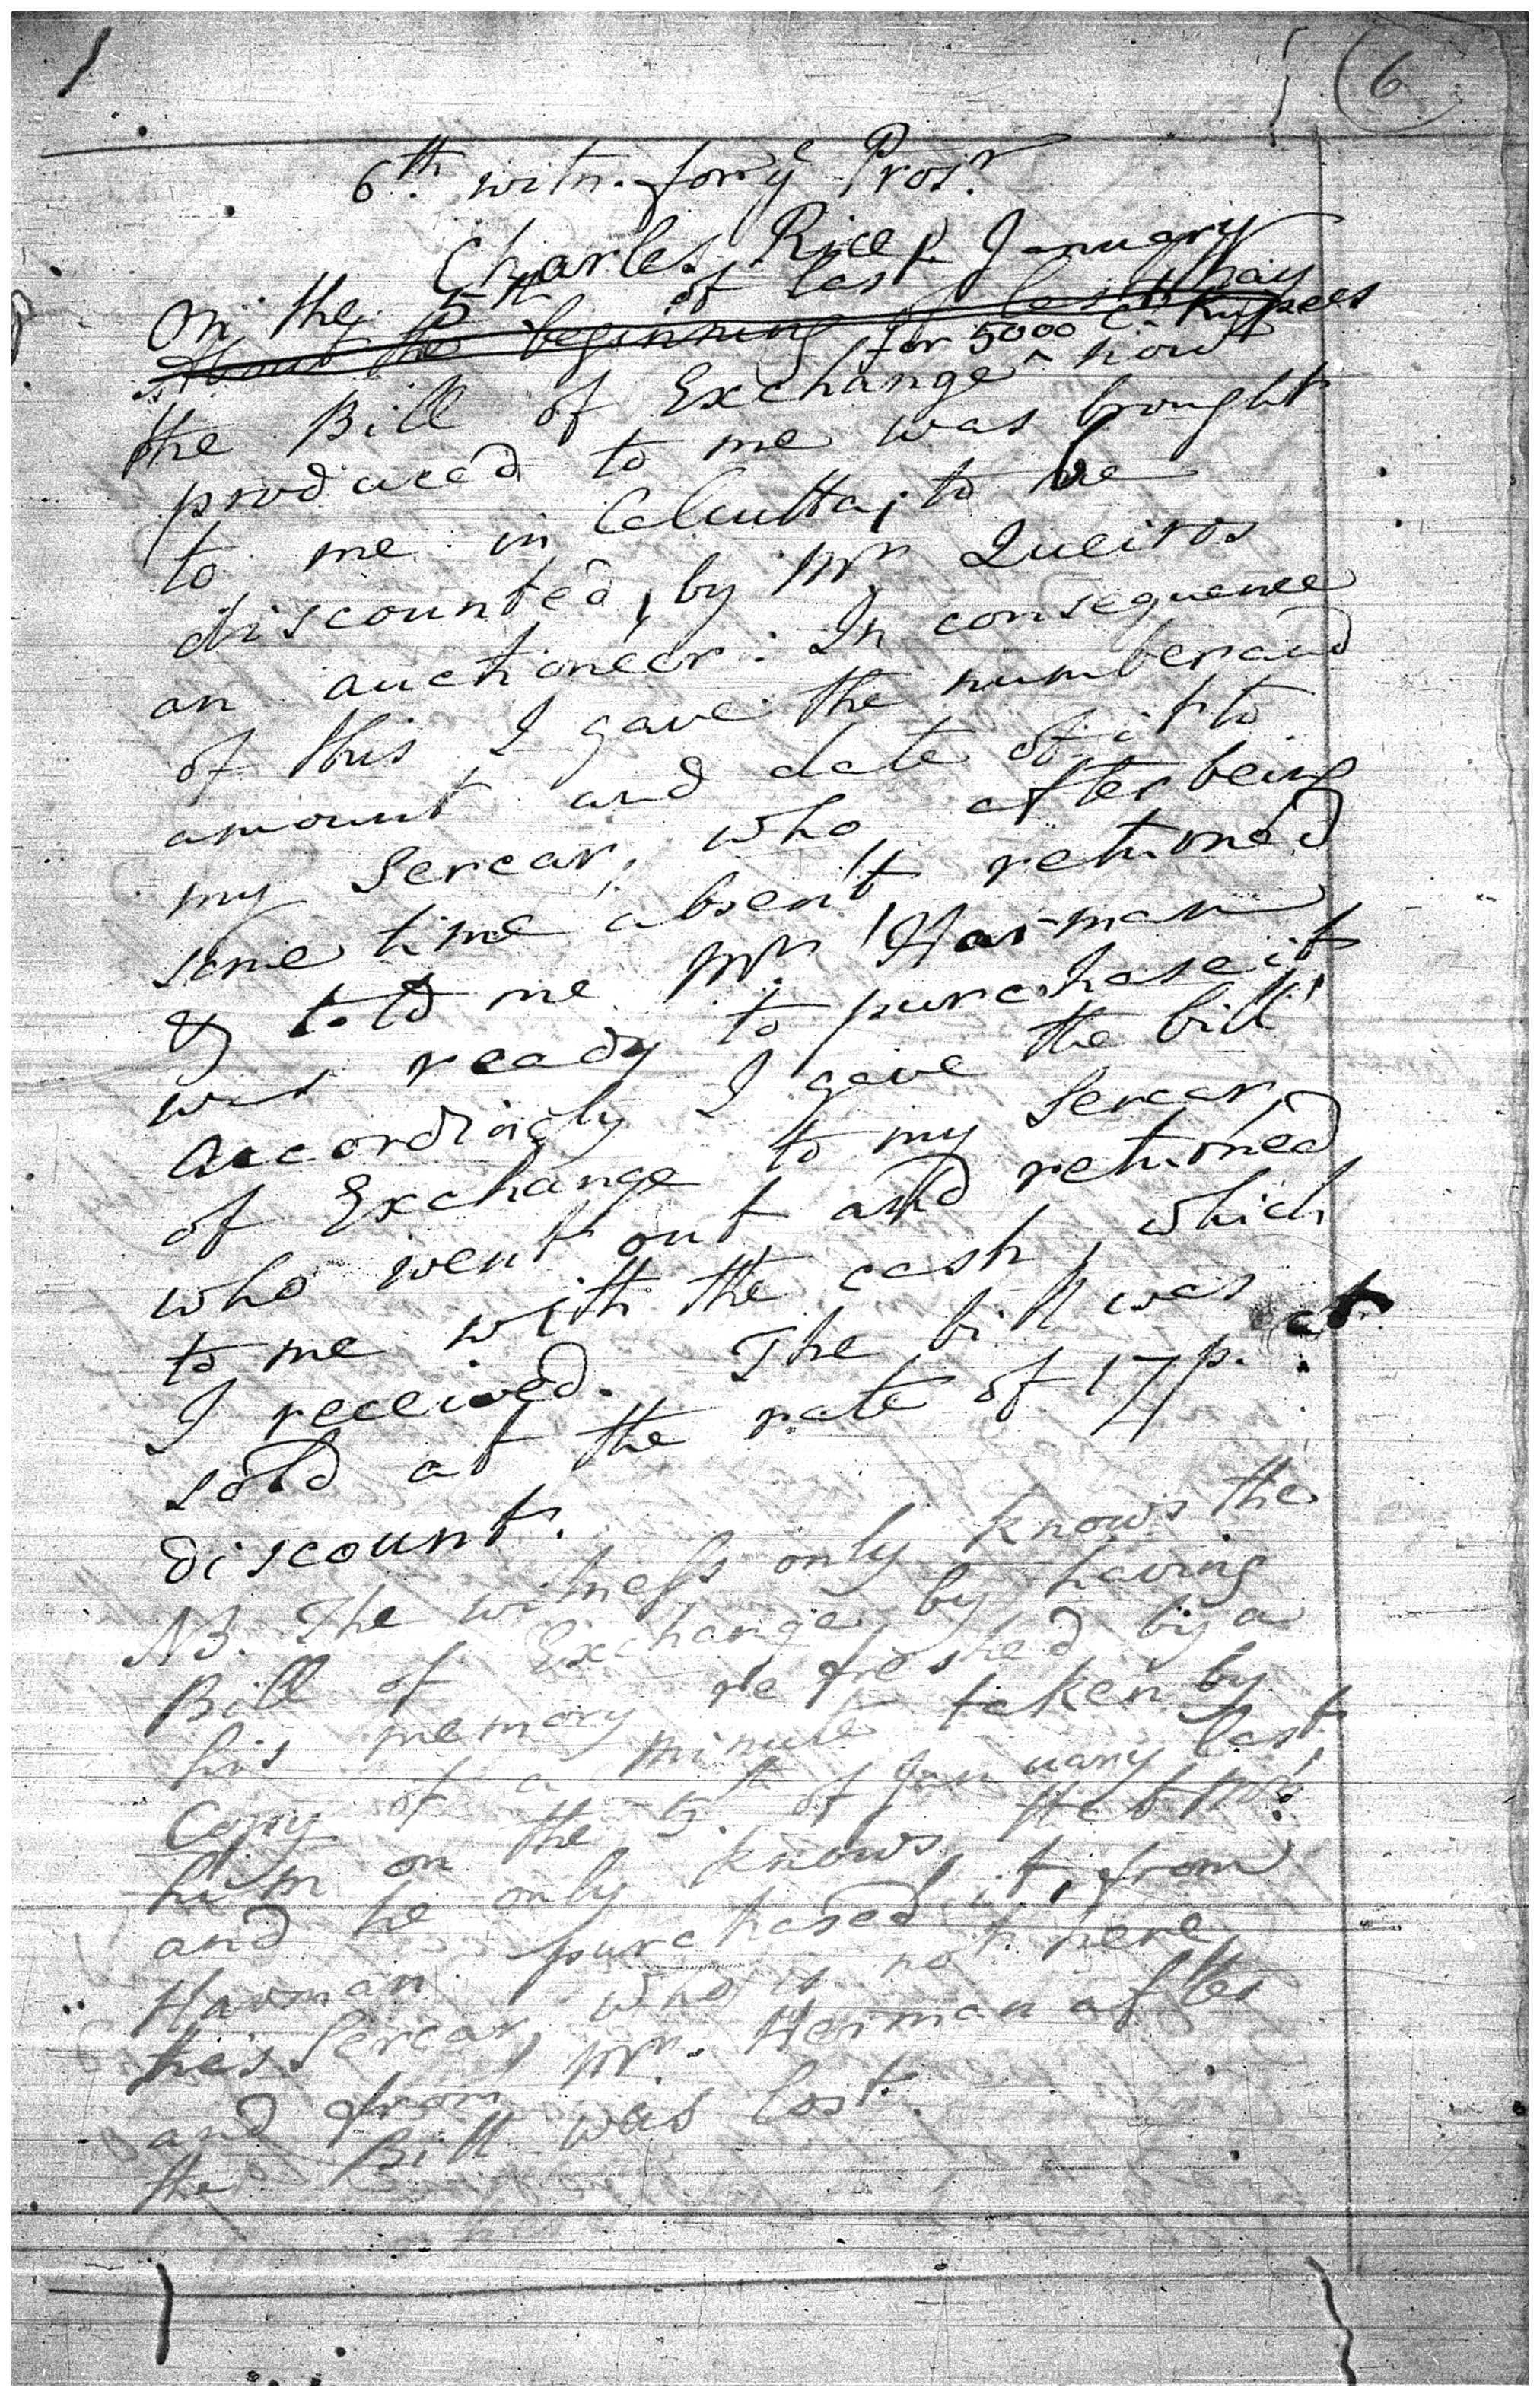 6
6th. witn. for ye Prosr.
Charles Rice p.
On the 5th of last January
About the beginning of last May
for 5000 Ct. Rupees
the Bill of Exchange ^ now
produced to me was brought
to me in Calcutta, to be
discounted, by Mr. Queiros
an auctioneer. In consequence
of this I gave the number and
amount and date of it to
my Sercar, who after being
some time absent returned
& told me Mr. Harman
was ready to purchase it
Accordingly I gave the bill
of Exchange to my Sercar,
who went out and returned
to me with the cash, which
I received. The bill was
sold at the rate of 17 p. ct
discount.
NB. The witness only knows the
Bill of Exchange by having
his memory refreshed by a
Copy of a minute taken by
him on the 5th of January last,
and he only knows that Mr.
Harman purchased it, from
his Sercar, who is not here,
and from Mr. Harman after
the Bill was lost.